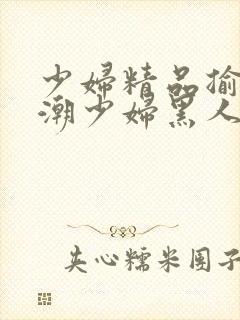 少婦精品揄
潮少婦黑人
夹心糯米团子